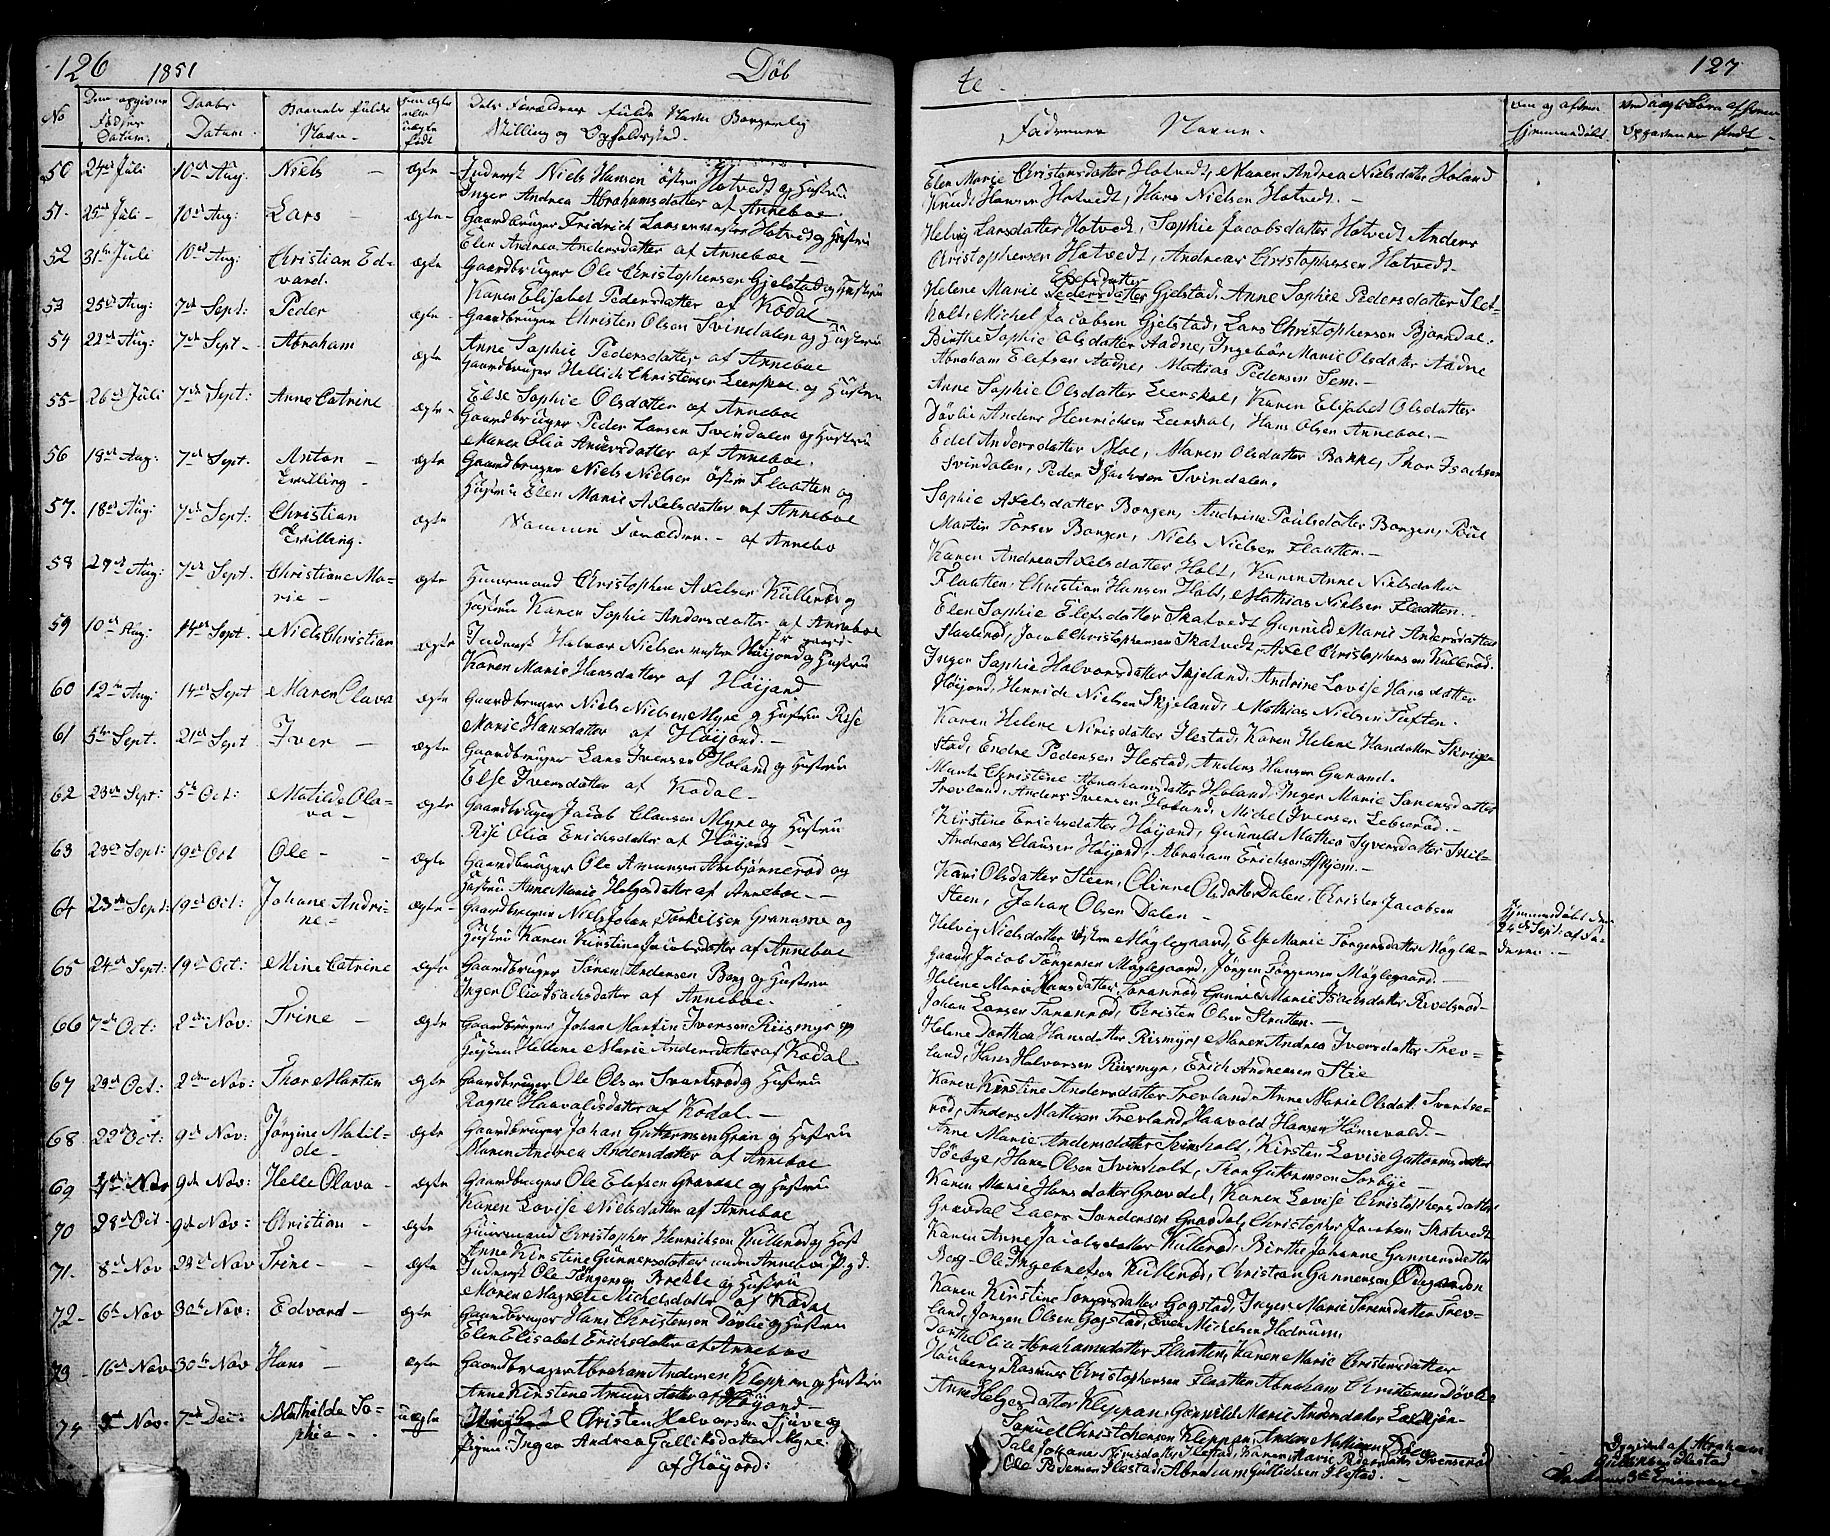 126 1851 Døb
No Dens opgivne Fødsels Datum. Daabs Datum. Barnets fulde Navn. om ægte eller uægte født Dets Forældres fulde Navn Borgerlig Stilling og Opholdssted.
50 24de Juli 10de Aug. Niels ægte Inderst Niels Hansen østre Hotvedt og Hustru
Inger Andrea Abrahamsdatter af Anneboe.
51. 25de Juli 10de Aug: Lars ægte Gaardbruger Fridrich Larsen vestre Hotvedt og Hustru
Elen Andrea Andersdatter af Anneboe
52 31te Juli 10de Aug: Christian Edvard. ægte Gaardbruger Ole Christophersen Gjelstad og Hustru
Karen Elisabet Pedersdatter af Kodal
53 25de Aug: 7de Sept: Peder ægte Gaardbruger Christen Olson Svindalen og Hustru
Anne Sophie Pedersdatter af Anneboe
54 22de Aug: 7de Sept Abraham ægte Gaardbruger Hellich Christensen Leerskal og Hustru
Else Sophie Olsdatter af Anneboe
55 26de Juli 7de Sept: Anne Catrine ægte Gaardbruger Peder Larsen Svindalen og Hustru
Maren Olia Andersdatter af Anneboe.
56 18de Aug: 7de Sept. Anton Tvilling ægte Gaardbruger Niels Nielsen østre Flaatten og
Hustru Elen Marie Axelsdatter af Anneboe
57. 18de Aug: 7de Sept: Christian Tvilling. ægte Samme Forældre. af Annebo
58 27de Aug: 7de Sept. Christiane Marie ægte Huusmand Christopher Axelsen Kullerød og
Hustru Karen Sophie Andersdatter af Anneboe
59 10de Aug: 14de Sept. Niels Christian ægte Inderst Halvor Nielsen vestre Høijord og Hustru
Karen Marie Hansdatter af Høijord
60 12te Aug: 14de Sept Maren Olava ægte Gaardbruger Niels Nielsen Myre og Hustru Rise
Marie Hansdatter af Høijord.
61 5te Sept. 21de Sept Iver ægte Gaardbruger Lars Iversen Holand og Hustru
Else Iversdatter af Kodal
62 23de Sept: 5te Oct: Matilde Olava ægte Gaardbruger Jacob Clausen Myre og Hustru
Rise Olia Erichsdatter af Høijord
63 23de Sept: 19de Oct Ole ægte Gaardbruger Ole Amunsen Askebjønnerød og
Hustru Anne Marie Helgesdatter af Anneboe
64 23de Sept: 19de Oct: Johane Andrine ægte Gaardbruger Niels Johan Torkelsen Granaasse og
Hustru Karen Kirstine Jacobsdatter af Anneboe
65 24de Sept: 19de Oct: Mine Catrine ægte Gaardbruger Sören Andersen Borg og Hustru
Inger Olia Isachsdatter af Anneboe.
66 7de Oct: 2den Nov: Trine ægte Gaardbruger Johan Martin Iversen Riismyr og
Hustru Hellene Marie Andersdatter af Kodal.
67 29de Oct: 2den Nov: Thor Martin ægte Gaardbruger Ole Olsen Svartsrød og Hustru
Ragne Haavaldsdatter af Kodal.
68 22de Oct: 9de Nov: Jørgine Matilde ægte Gaardbruger Johan Guttormsen Gran og Hustru
Maren Andrea Andersdatter af Anneboe
69 4de Nov 9de Nov: Helle Olava ægte Gaardbruger Ole Elefsen Gravdal og Hustru
Karen Lovise Nielsdatter af Anneboe
70 28de Oct 9de Nov: Christian ægte Huusmand Christopher Henriksen Kullerød og Hust
Anne Kirstine Gunnersdatter under Anneboe P.gd.
71. 8de Nov 23de Nov Trine ægte Inderst Ole Jörgensen Brekke og Hustru
Maren Magrete Michelsdatter af Kodal
72 6te Nov 30te Nov: Edvard ægte Gaardbruger Hans Christensen Døvlie og Hustru
Elen Elisabet Erichsdatter af Anneboe
73 16de Nov 30te Nov Hans ægte Gaardbruger Abraham Andersen Kleppan og Hustru
Anne Kirstine Amunsdatter af Høijord
74 3de Nov. 7de Dec: Mathilde Sophie uægte Christen Halvorsen Tjuve og
Pigen Inger Andrea Gulliksdatter Myre
af Høijord:
te 127
Faddernes Navne. om og af hvem hjemmedøbt
Elen Marie Christensdatter Hotvedt, Maren Andrea Nielsdatter Holand
Knud Hansen Hotvedt, Hans Nielsen Hotvedt.
Helvig Larsdatter Hotvedt, Sophie Jacobsdatter Hotvedt Anders
Christophersen Hotvedt, Andreas Christophersen Hotvedt.
Elefsdatter
Helene Marie Pedersdatter Gjelstad, Anne Sophie Pedersdatter Slet-
holt, Michel Jacobsen Gjelstad, Lars Christophersen Bjørndal:
Birthe Sophie Olsdatter Aadne, Ingebör Marie Olsdatter Aadne
Abraham Elefsen Aadne, Mathias Pedersen Sem.
Anne Sophie Olsdatter Leerskal, Karen Elisabet Olsdatter
Dövlie Anders Henrichsen Leerskal, Hans Olsen Anneboe.
Edel Andersdatter Moe, Maren Olsdatter Bakke, Thor Isachsen
Svindalen, Peder Isachsen Svindalen.
Sophie Axelsdatter Borgen, Andrine Poulsdatter Borgen, Poul
Martin Borgen, Niels Nielsen Flaatten.
Karen Andrea Axelsdatter Holt, Karen Anne Nielsdatter
Flaatten, Christian Hansen Holt, Mathias Nielsen Flaatten.
Elen Sophie Elefsdatter Skatvedt Gunnild Marie Andersdatter
Jacob Christophersen Skatvedt, Axel Christophersen Kullerød.
Inger Sophie Halvorsdatter Skjeland, Andrine Lovise Hansdatter
Høijord, Henrich Nielsen Skjeland, Mathias Nielsen Tuften.
Karen Helene Ilestad, Karen Helene Hansdatter Skrige-
stad, Endre Pedersen Ilestad, Anders Hansen
Marte Christine Abrahamsdatter Holand, Inger Marie Sörensdatter
Trevland, Anders Iversen Holand, Michel Iversen Lebserød.
Kirstine Erichsdatter Høijord, Gunnild Mathea Syversdatter
Andreas Clausen Høijord, Abraham Erichsen Askjem.
Kari Olsdatter Steen, Olinne Olsdatter Dalen, Christen Jacobsen
Steen, Johan Olsen Dalen
Helvig Nielsdatter vestre Møglegaard, Else Marie Jörgensdatter Møgle-
gaard, Jacob Jörgensen Møglegaard, Jörgen Jörgensen Møglegaard.
Hjemmedøbt den 24de Sept: af Faderen.
Helene Marie Hansdatter Gunnild Marie Isachsdatter
Johan Larsen Christen Olsen
Helene Dorthea Hansdatter Riismyr, Maren Andrea Iversdatter Trev-
land, Hans Halvorsen Riismyr, Erich Andersen Stie
Karen Kirstine Andersdatter Trevland, Anne Marie Olsdatt. Svartse-
rød, Anders Mathisen Trevland Haavald Hansen
Anne Marie Andersdatter Svinholt, Kirsten Lovise Guttormsdatter
Söebye, Hans Olsen Svinholt, Thor Guttormsen Sørbye
Karen Marie Hansdatter Gravdal, Karen Lovise Christophersdatter
Gravdal Lars Sandersen Gravdal, Christopher Jacobsen Skatvedt
Karen Anne Jacobsdatter Kullerød, Birthe Johanne Gunnersdatter
Bog. Ole Ingebretsen Kullerød, Christian Gunnersen Ødegaarden
Karen Kirstine Jörgensdatter Gogstad, Inger Marie Sörensdatter Trev-
land, Jørgen Olsen Gogstad, Even Michelsen Hedrum.
Dorthe Olia Abrahamsdatter Flaatten, Karen Marie Christensdatter
Rasmus Christophersen Flaatten Abraham Christensen Døvlie
Anne Helgesdatter Kleppan, Gunnild Marie Andersdatter
Samuel Christophersen Kleppan, Anders Mathisen
Ilestad, Karen Marie Pedersdatter
Ole Pedersen Ilestad, Abraham Gulliksen Ilestad.
Opgivet af Abraham
Gulliksen Ilestad